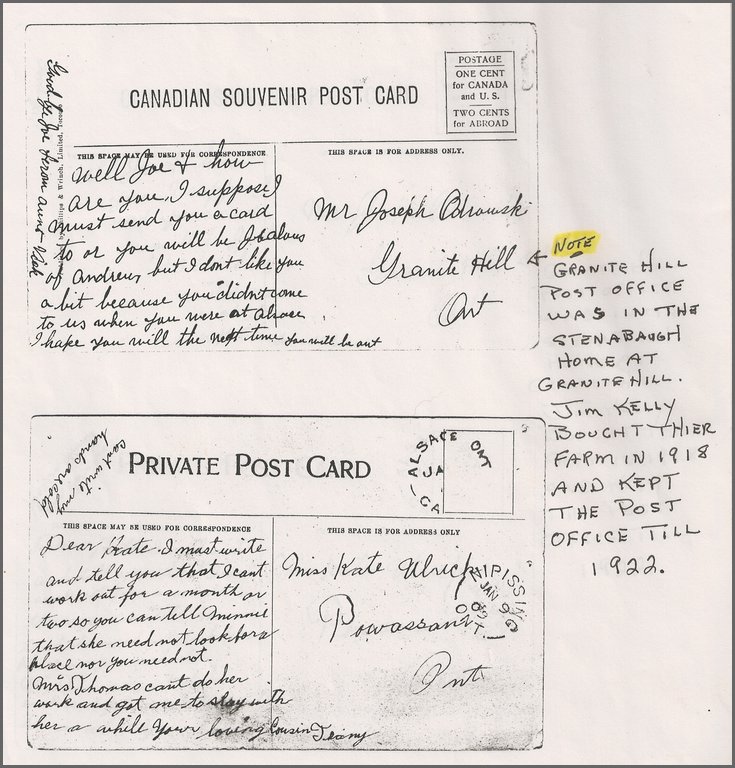 CANADIAN SOUVENIR POST CARD
POSTAGE
ONE CENT
for CANADA
and U. S.
TWO CENTS
for ABROAD
Good bye Joe from aunt
THIS SPACE MAY BE USED FOR CORRESPONDENCE
THIS SPACE IS FOR ADDRESS ONLY.
Well Joe & how
are you, I suppose I
must send you a card
to or you will be Jealous
of Andrew, but I dont like you
a bit because you didnt come
to us when you were at Alsace
I hope you will the next time you will be out
Mr Joseph Odrowski
Granite Hill
Ont
NOTE
GRANITE HILL
POST OFFICE
WAS IN THE
STENABAUGH
HOME AT
GRANITE HILL.
JIM KELLY
BOUGHT THIER
FARM IN 1918
AND KEPT
THE POST
OFFICE TILL
1922.
cant write my
hands are cold
PRIVATE POST CARD
ALSACE ONT
JA
CA
THIS SPACE MAY BE USED FOR CORRESPONDENCE
THIS SPACE IS FOR ADDRESS ONLY
Dear Kate. I must write
and tell you that I cant
work out for a month or
two so you can tell Minnie
that she need not look for a
place nor you need not.
Mrs Thomas cant do her
work and got me to stay with
her a while Your loving Cousin Teany
Miss Kate Ulrich
Powassan
Ont
NIPISSING
JAN 9
09
ONT.